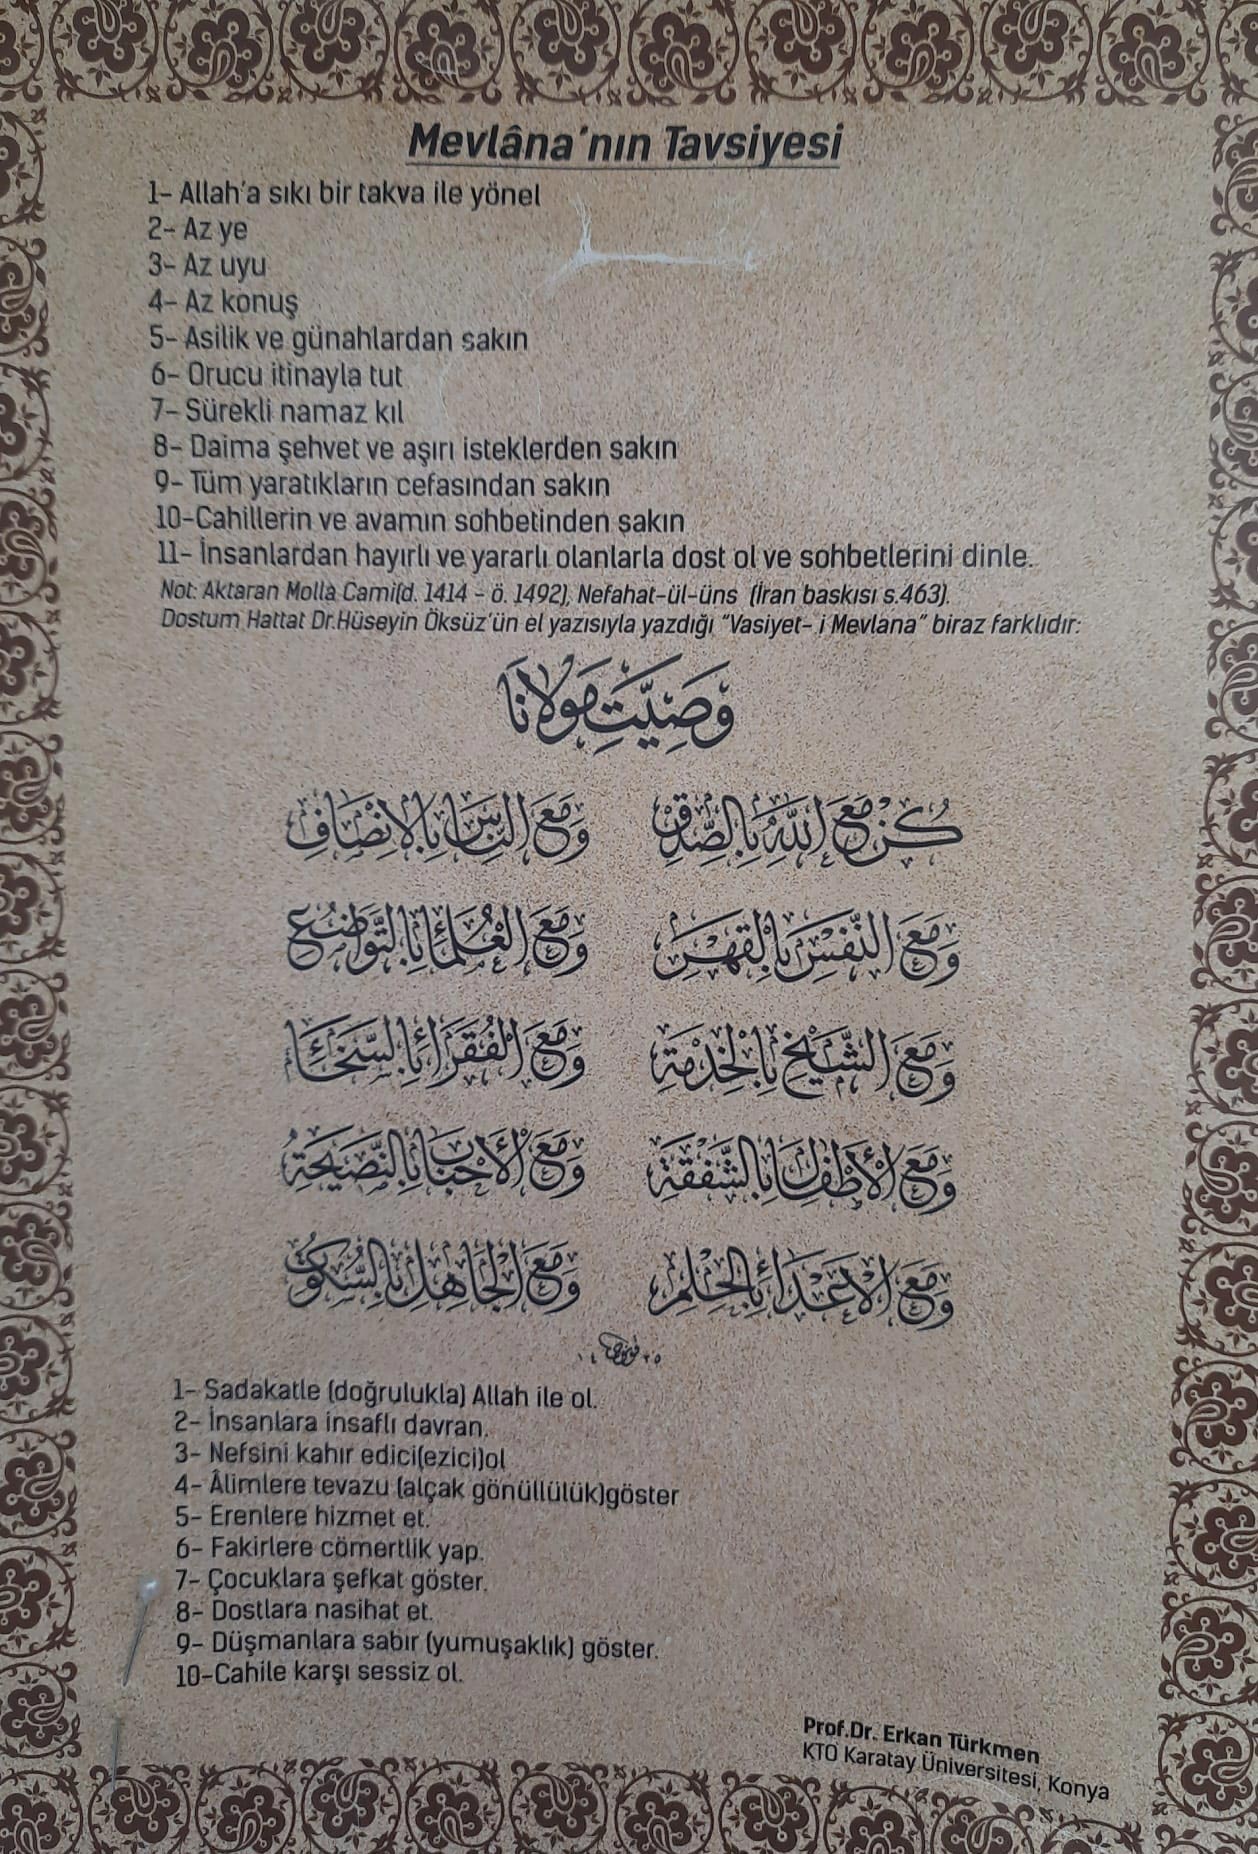 Mevlâna'nın Tavsiyesi
1- Allah'a sıkı bir takva ile yönel
2- Az ye
3- Az uyu
4- Az konuş
5- Asilik ve günahlardan sakın
6- Orucu itinayla tut
7- Sürekli namaz kıl
8- Daima şehvet ve aşırı isteklerden sakın
9- Tüm yaratıkların cefasından sakın
10-Cahillerin ve avamın sohbetinden sakın
11- İnsanlardan hayırlı ve yararlı olanlarla dost ol ve sohbetlerini dinle.
Not: Aktaran Molla Cami(d. 1414 - ö. 1492), Nefahat-ül-üns (İran baskısı s.463).
Dostum Hattat Dr.Hüseyin Öksüz'ün el yazısıyla yazdığı "Vasiyet- i Mevlana" biraz farklıdır:
وَصِيَّتِ مَوْلَانَا
كُنْ مَعَ اللهِ بِالصِّدْقِ وَمَعَ النَّاسِ بِالْاِنْصَافِ
وَمَعَ النَّفْسِ بِالْقَهْرِ وَمَعَ الْعُلَمَاءِ بِالتَّوَاضُعِ
وَمَعَ الشَّيْخِ بِالْخِدْمَةِ وَمَعَ الْفُقَرَاءِ بِالسَّخَاءِ
وَمَعَ الْأَطْفَالِ بِالشَّفَقَةِ وَمَعَ الْأَحْبَابِ بِالنَّصِيحَةِ
وَمَعَ الْأَعْدَاءِ بِالْحِلْمِ وَمَعَ الْجَاهِلِ بِالسُّكُوتِ
1- Sadakatle (doğrulukla) Allah ile ol.
2- İnsanlara insaflı davran.
3- Nefsini kahır edici(ezici)ol
4- Âlimlere tevazu (alçak gönüllülük)göster
5- Erenlere hizmet et.
6- Fakirlere cömertlik yap.
7- Çocuklara şefkat göster.
8- Dostlara nasihat et.
9- Düşmanlara sabır (yumuşaklık) göster.
10-Cahile karşı sessiz ol.
Prof.Dr. Erkan Türkmen
KTO Karatay Üniversitesi, Konya